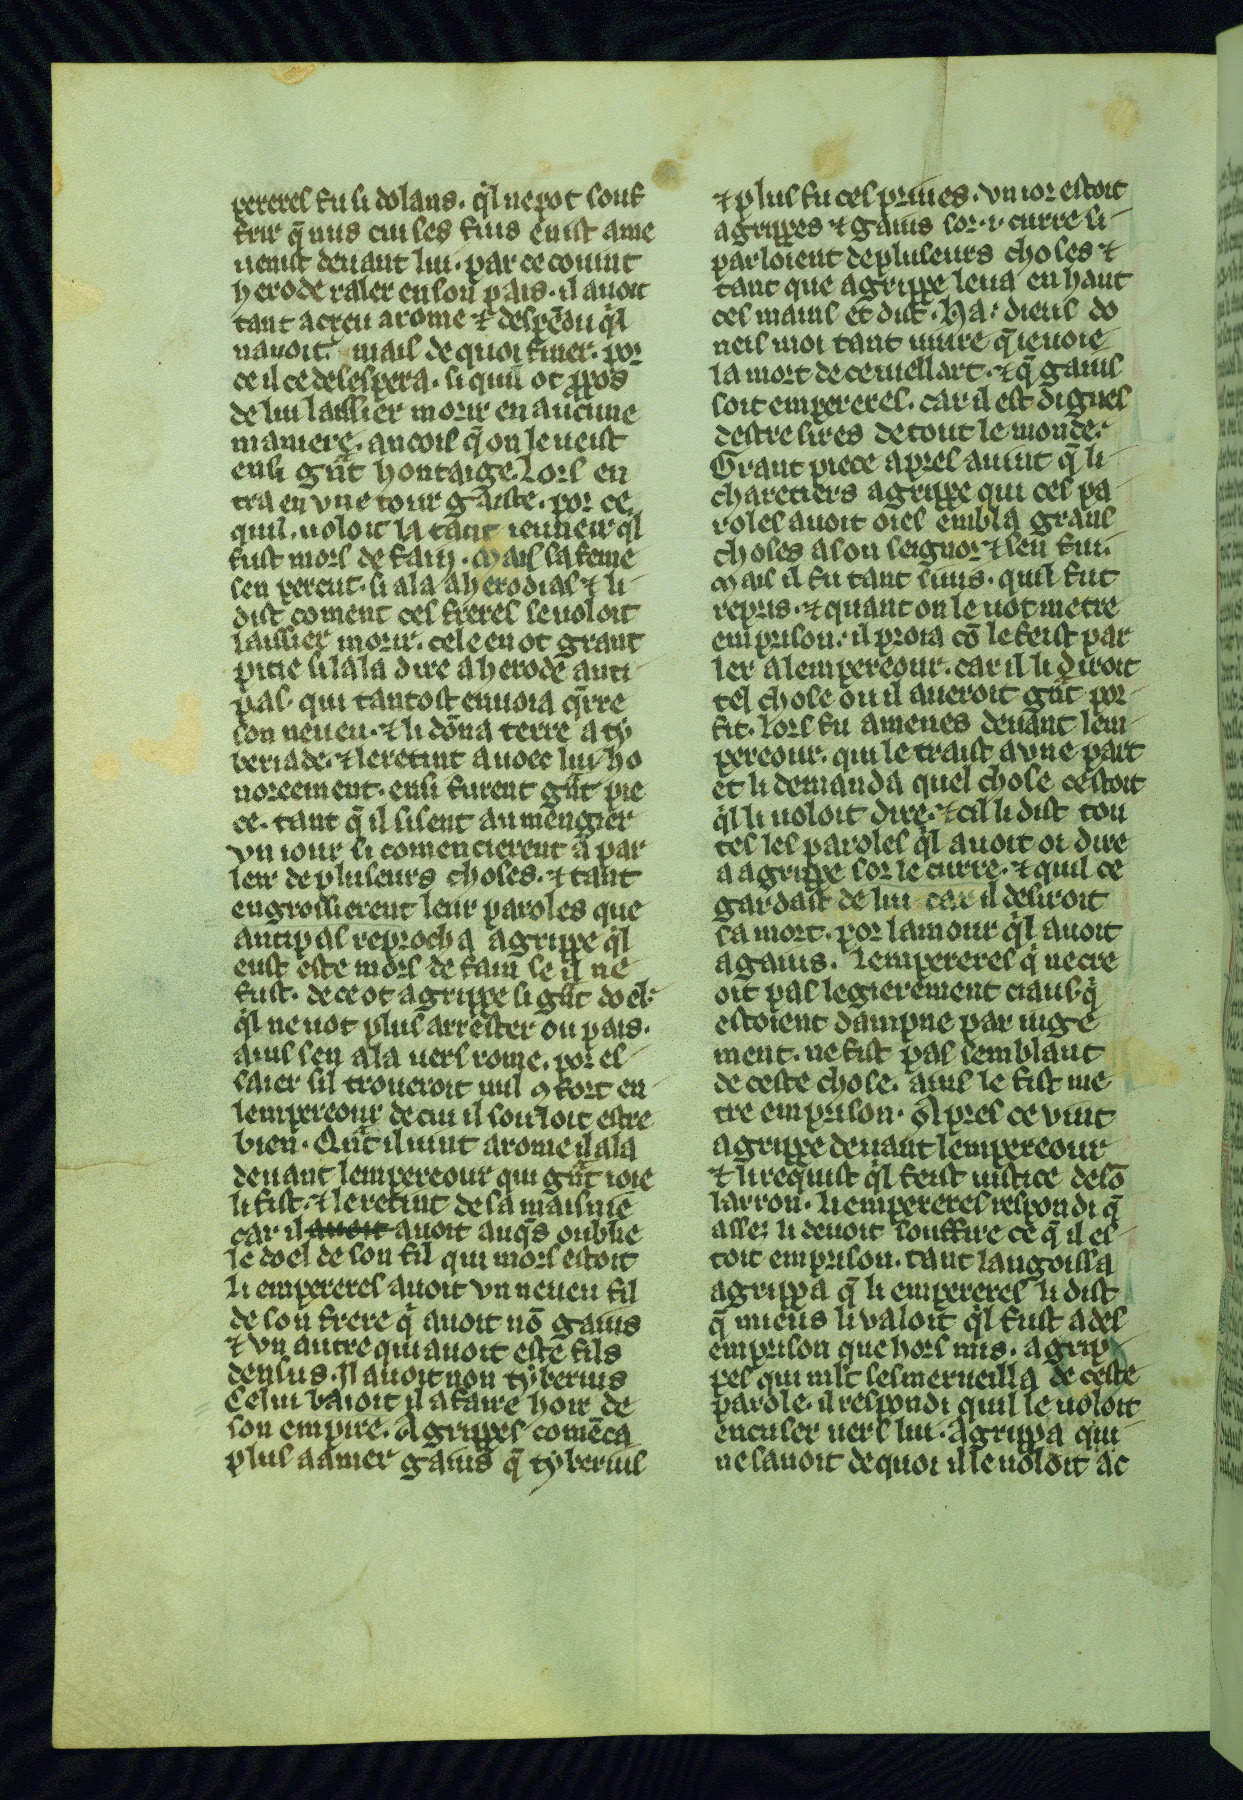 pereres fu si dolans. ql̍ ne pot souf
frir q̄ nus cui ses fius eust ame
uenist deuant lui. par ce couint
herode raler en son pais. il auoit
tant acreu a rome ⁊ despēdu ql̍
nauoit mais de quoi finer. por
ce il ce desespera. si quil ot ꝓpos
de lui laissier morir en aucune
maniere. ancois q̄ on le ueist
ensi gnͣt hontaige. Lors en
tra en vne tour gaiste. por ce
quil uoloit la tant ieuneir ql̍
fust mors de fain. Mais sa feme
sen percut. si ala a herodias ⁊ li
dist coment ces freres se uoloit
laissier morir. cele en ot grant
pitie si lala dire a herode anti
pas. qui tantost enuoia q̄rre
son neueu. ⁊ li dōna terre a ty
beriade. ⁊ le retint auoec lui ho
noreement. ensi furent gnͣt pie
ce. tant q̄ il sisent au mengier
vn iour. si comencierent a par
leir de pluseurs choses. ⁊ tant
engrossierent leur paroles que
antipas reprocha agrippe ql̍
eust este mors de fain se il ne
fust. de ce ot agrippe si gnͣt doel.
ql̍ ne uot plus arrester ou pais.
ains sen ala uers rome. por es
saier sil troueroit nul ꝯfort en
lempereour de cui il souloit estre
bien. Qn̄t il uint a rome il ala
deuant lempereour qui gnͣt ioie
li fist. ⁊ le retint de sa maisnie
car il auoit auoit auqs̄ oublie
le doel de son fil qui mors estoit
Li empereres auoit vn neueu fil
de son frere q̍ auoit nō gaius
⁊ vn autre qui auoit este fils
densus. Il auoit non tyberius
Celui baioit il a faire hoir de
son empire. Agrippes comēca
plus a amer gaius q̄ tyberius
⁊ plus fu ces priues. vn ior estoit
agrippes ⁊ gaius sor .i. curre si
parloient de pluseurs choses ⁊
tant que agrippe leua en haut
ces mains et dist. Ha: dieus do
neis moi tant uiure q̄ ie uoie
la mort de ce uiellart. ⁊ q̄ gaius
soit empereres. car il est dignes
destre sires de tout le monde.
Grant piece apres auint q̄ li
charetiers agrippe qui ces pa
roles auoit oies embla graus
choses a son seignor ⁊ sen fui.
Mais il fu tant siuis. quil fut
repris. ⁊ quant on le uot metre
em prison. il proia cō le feist par
ler a lempereour. car il li diroit
tel chose ou il aueroit gnͣt por
fit. Lors fu amenes deuant lem
pereour. qui le traist a vne part
et li demanda quel chose cestoit
ql̍ li uoloit dire. ⁊ cil li dist tou
tes les paroles ql̍ auoit oi dire
a agrippe sor le curre. ⁊ quil ce
gardast de lui car il desiroit
sa mort. por lamour ql̍ auoit
a gaius. Lempereres q̍ ne cre
oit pas legierement ciaus q̍
estoient dampne par iuge
ment. ne fist pas semblant
de ceste chose. ains le fist me
tre em prison. Apres ce vint
agrippe deuant lempereour
⁊ li requist ql̍ feist iustice de sō
larron. li empereres respondi q̄
assez li deuoit souffire ce q̄ il es
toit em prison. tant langoissa
agrippa q̄ li empereres li dist
q̄ mieus li valoit ql̍ fust ades
em prison que hors mis. agrip
pes qui mlt sesmerueilla de ceste
parole. il respondi quil le uoloit
encuser uers lui. Agrippa qui
ne sauoit de quoi il le uoloit ac